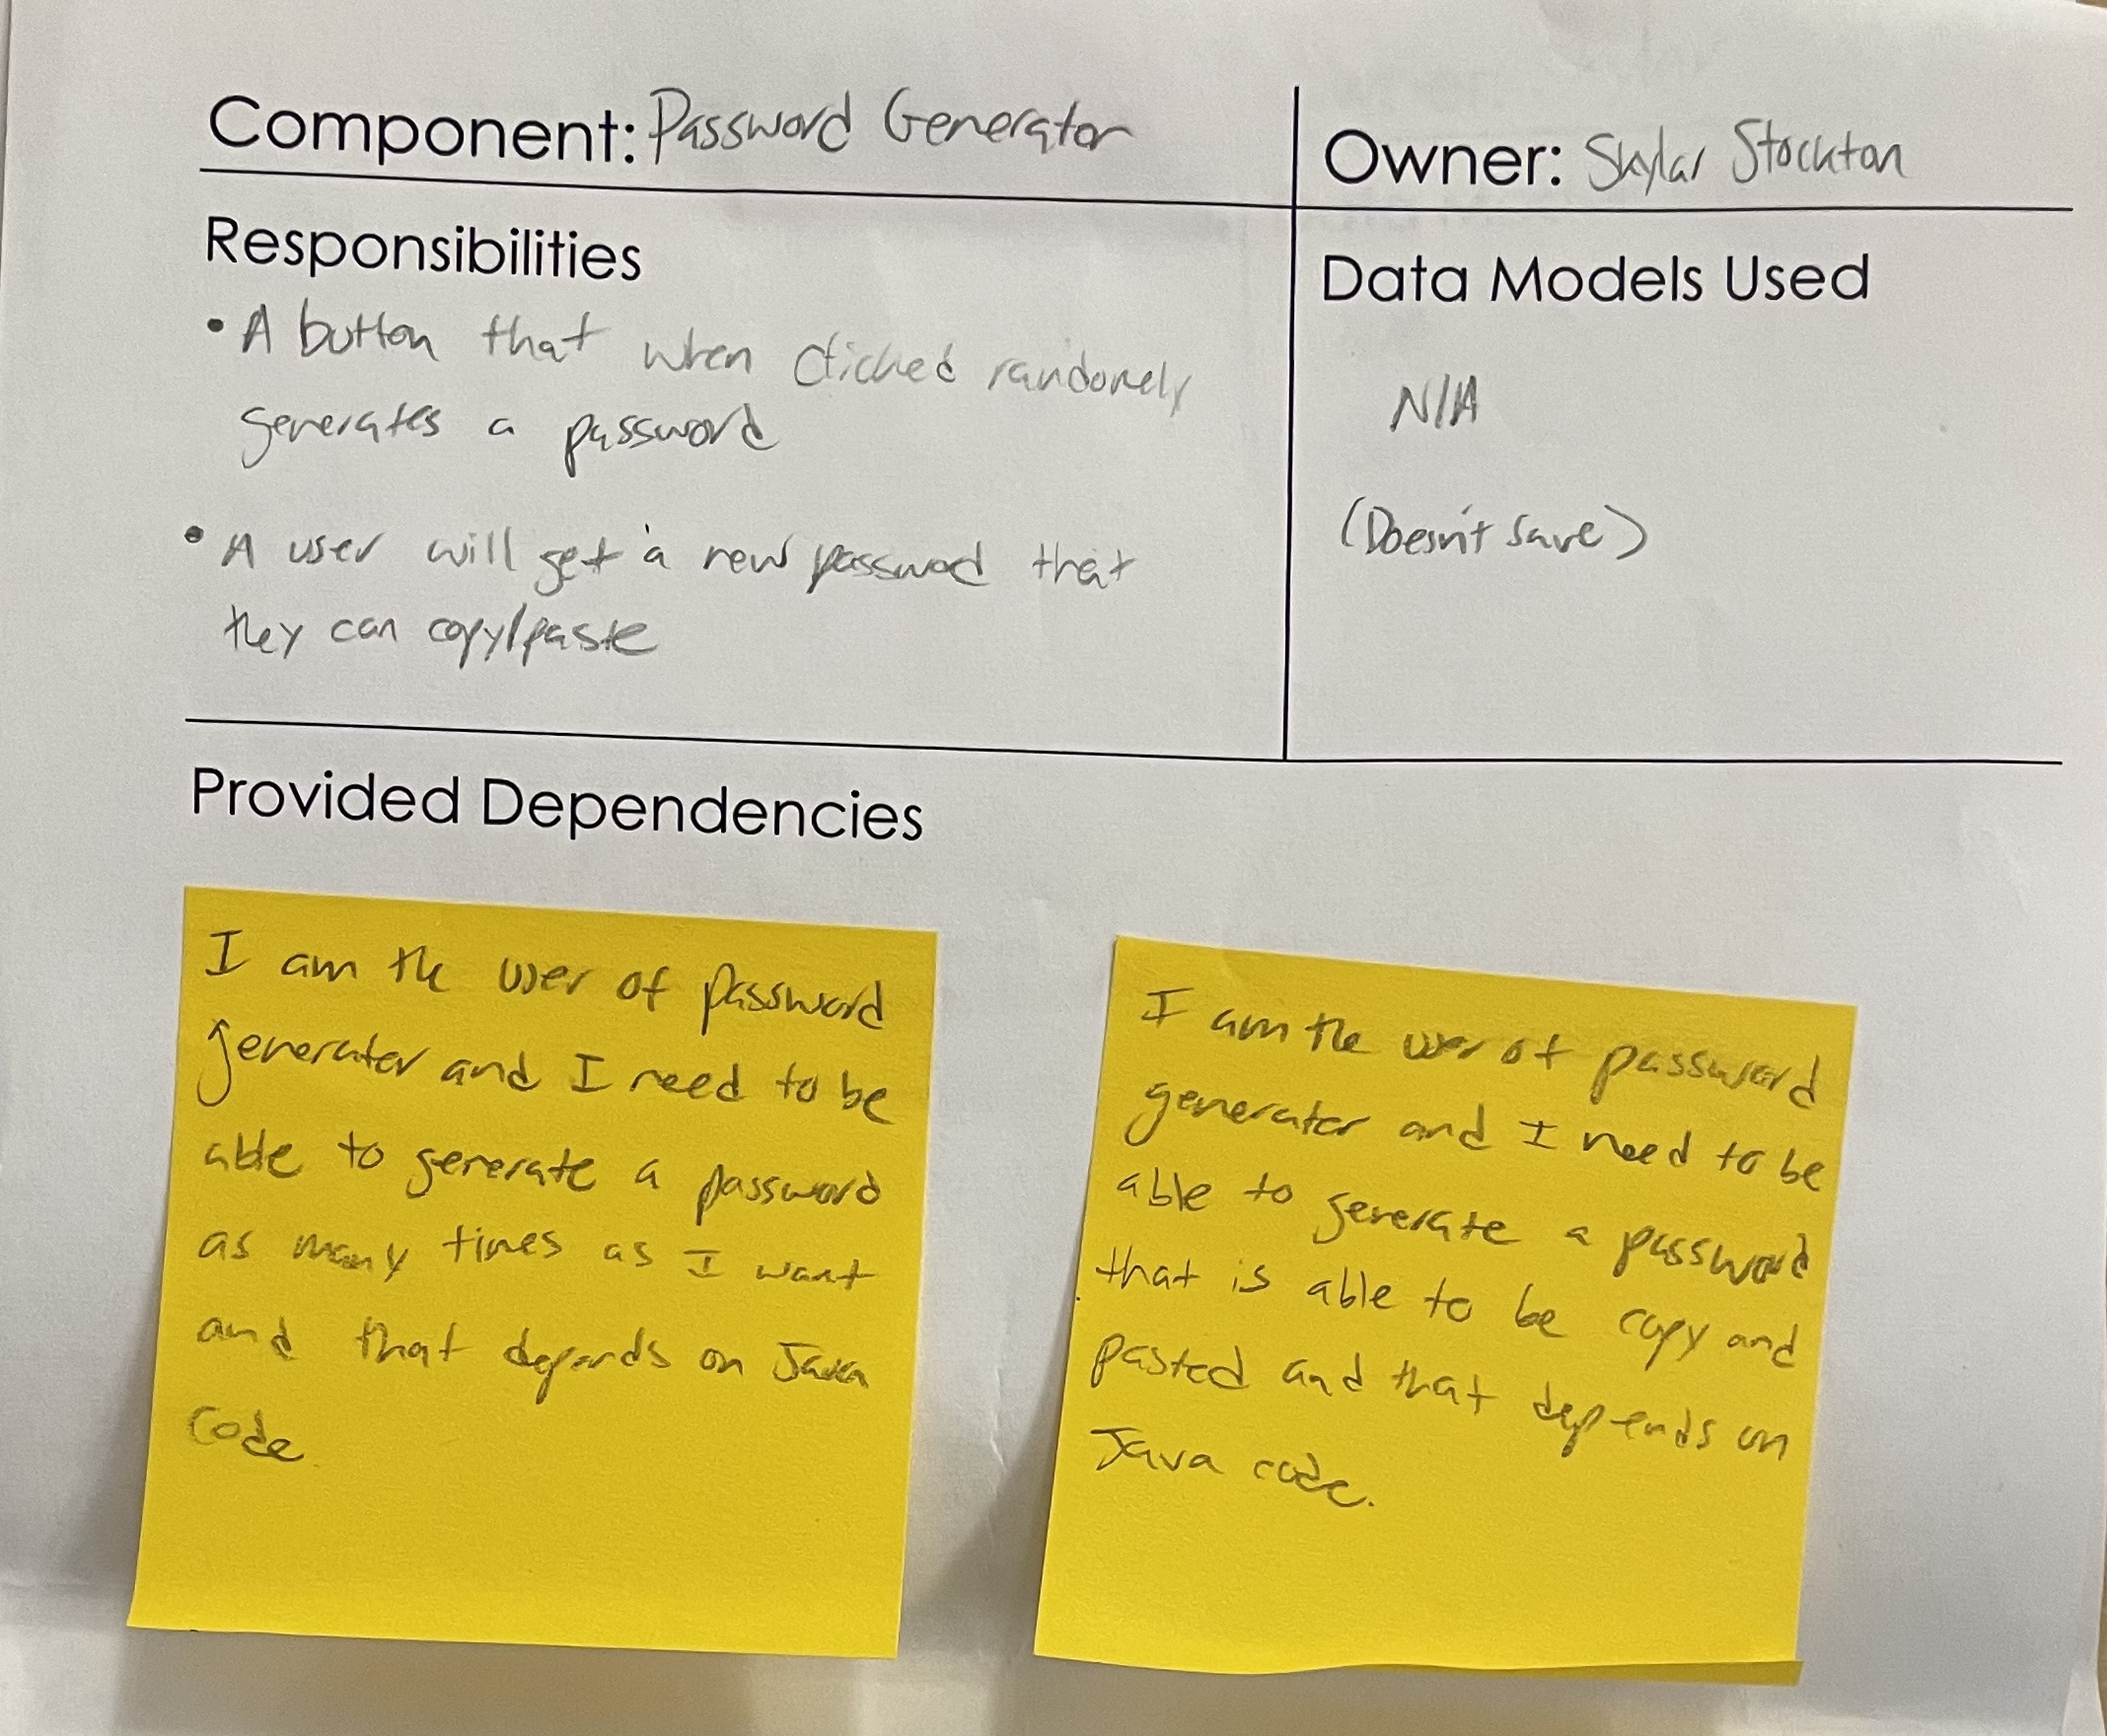 Component: Password Generator
Owner: Skylar Stockton
Responsibilities
• A button that when clicked randomely
generates a password
• A user will get a new passwod that
they can copy/paste
Data Models Used
N/A
(Doesn't save)
Provided Dependencies
I am the user of password
generator and I need to be
able to generate a password
as many times as I want
and that depends on Java
code.
I am the user of password
generator and I need to be
able to generate a password
that is able to be copy and
pasted and that depends on
Java code.